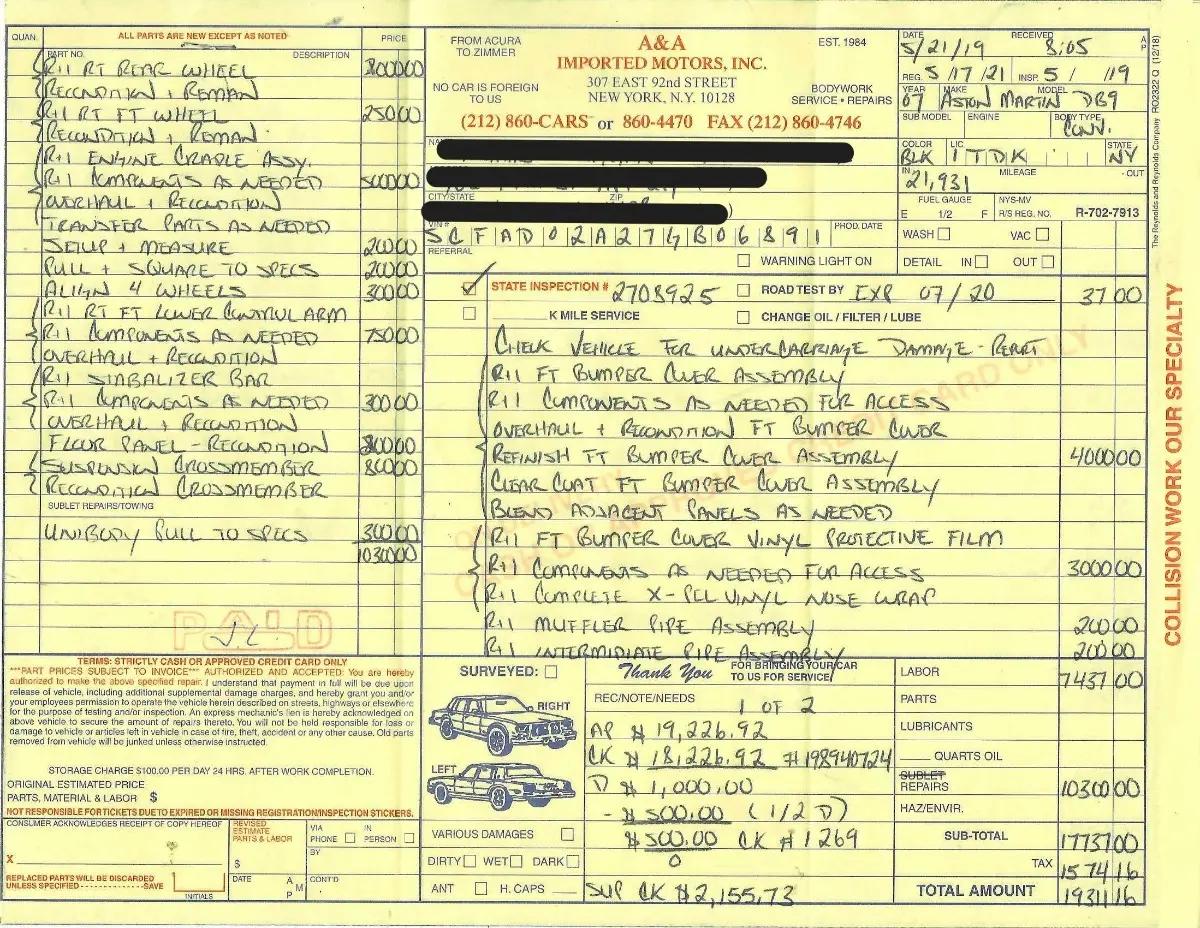 QUAN.
ALL PARTS ARE NEW EXCEPT AS NOTED
PART NO.
DESCRIPTION
PRICE
R+I RT REAR WHEEL
RECONDITION + REMAN
R+I RT FT WHEEL 250 00
RECONDITION + REMAN
R+I ENGINE CRADLE ASSY.
R+I COMPONENTS AS NEEDED 5000 00
OVERHAUL + RECONDITION
TRANSFER PARTS AS NEEDED
SETUP + MEASURE 200 00
PULL + SQUARE TO SPECS 200 00
ALIGN 4 WHEELS 300 00
R+I RT FT LOWER CONTROL ARM
R+I COMPONENTS AS NEEDED 750 00
OVERHAUL + RECONDITION
R+I STABALIZER BAR
R+I COMPONENTS AS NEEDED 300 00
OVERHAUL + RECONDITION
FLOOR PANEL - RECONDITION
SUSPENSION CROSSMEMBER 800 00
RECONDITION CROSSMEMBER
SUBLET REPAIRS/TOWING
UNIBODY PULL TO SPECS 300 00
10300 00
PAID
TERMS: STRICTLY CASH OR APPROVED CREDIT CARD ONLY
***PART PRICES SUBJECT TO INVOICE*** AUTHORIZED AND ACCEPTED: You are hereby
authorized to make the above specified repair. I understand that payment in full will be due upon
release of vehicle, including additional supplemental damage charges, and hereby grant you and/or
your employees permission to operate the vehicle herein described on streets, highways or elsewhere
for the purpose of testing and/or inspection. An express mechanic's lien is hereby acknowledged on
above vehicle to secure the amount of repairs thereto. You will not be held responsible for loss or
damage to vehicle or articles left in vehicle in case of fire, theft, accident or any other cause. Old parts
removed from vehicle will be junked unless otherwise instructed.
STORAGE CHARGE $100.00 PER DAY 24 HRS. AFTER WORK COMPLETION.
ORIGINAL ESTIMATED PRICE
PARTS, MATERIAL & LABOR $
NOT RESPONSIBLE FOR TICKETS DUE TO EXPIRED OR MISSING REGISTRATION/INSPECTION STICKERS.
CONSUMER ACKNOWLEDGES RECEIPT OF COPY HEREOF
X
REPLACED PARTS WILL BE DISCARDED
UNLESS SPECIFIED - - - - - - - - - - - - -SAVE
INITIALS
REVISED
ESTIMATE
PARTS & LABOR
$
DATE
A
M
P
VIA
PHONE
IN
PERSON
BY
CONT'D
FROM ACURA
TO ZIMMER
NO CAR IS FOREIGN
TO US
A&A
IMPORTED MOTORS, INC.
307 EAST 92nd STREET
NEW YORK, N.Y. 10128
(212) 860-CARS or 860-4470 FAX (212) 860-4746
EST. 1984
BODYWORK
SERVICE • REPAIRS
CITY/STATE
ZIP
VIN #
SCFAD02A27GB06891
PROD. DATE
REFERRAL
WARNING LIGHT ON
DATE
5/21/19
RECEIVED
8:05
A
P
REG. 5/17/21 INSP. 5/ /19
YEAR
07
MAKE
ASTON MARTIN
MODEL
DB9
SUB MODEL
ENGINE
BODY TYPE
CONV.
COLOR
BLK
LIC.
1TDK
STATE
NY
IN
21,931
MILEAGE
- OUT
FUEL GAUGE
E 1/2 F
NYS-MV
R/S REG. NO.
R-702-7913
WASH
VAC
DETAIL IN OUT
STATE INSPECTION # 2708925
ROAD TEST BY EXP 07/20 37 00
K MILE SERVICE
CHANGE OIL / FILTER / LUBE
CHECK VEHICLE FOR UNDERCARRIAGE DAMAGE - REPORT
R+I FT BUMPER COVER ASSEMBLY
R+I COMPONENTS AS NEEDED FOR ACCESS
OVERHAUL + RECONDITION FT BUMPER COVER
REFINISH FT BUMPER COVER ASSEMBLY 4000 00
CLEAR COAT FT BUMPER COVER ASSEMBLY
BLEND ADJACENT PANELS AS NEEDED
R+I FT BUMPER COVER VINYL PROTECTIVE FILM
R+I COMPONENTS AS NEEDED FOR ACCESS 3000 00
R+I COMPLETE X-PEL VINYL NOSE WRAP
R+I MUFFLER PIPE ASSEMBLY 200 00
R+I INTERMIDIATE PIPE ASSEMBLY 200 00
SURVEYED:
RIGHT
LEFT
VARIOUS DAMAGES
DIRTY WET DARK
ANT H. CAPS
Thank You
FOR BRINGING YOUR CAR
TO US FOR SERVICE
REC/NOTE/NEEDS
1 OF 2
AP $ 19,226.92
CK $ 18,226.92 #198940724
D $ 1,000.00
- $ 500.00 (1/2 D)
$ 500.00 CK #1269
0
SUP CK $2,155.73
LABOR 7437 00
PARTS
LUBRICANTS
QUARTS OIL
SUBLET
REPAIRS 10300 00
HAZ/ENVIR.
SUB-TOTAL 17737 00
TAX 1574 16
TOTAL AMOUNT 19311 16
The Reynolds and Reynolds Company RO2322 Q (12/18)
COLLISION WORK OUR SPECIALTY